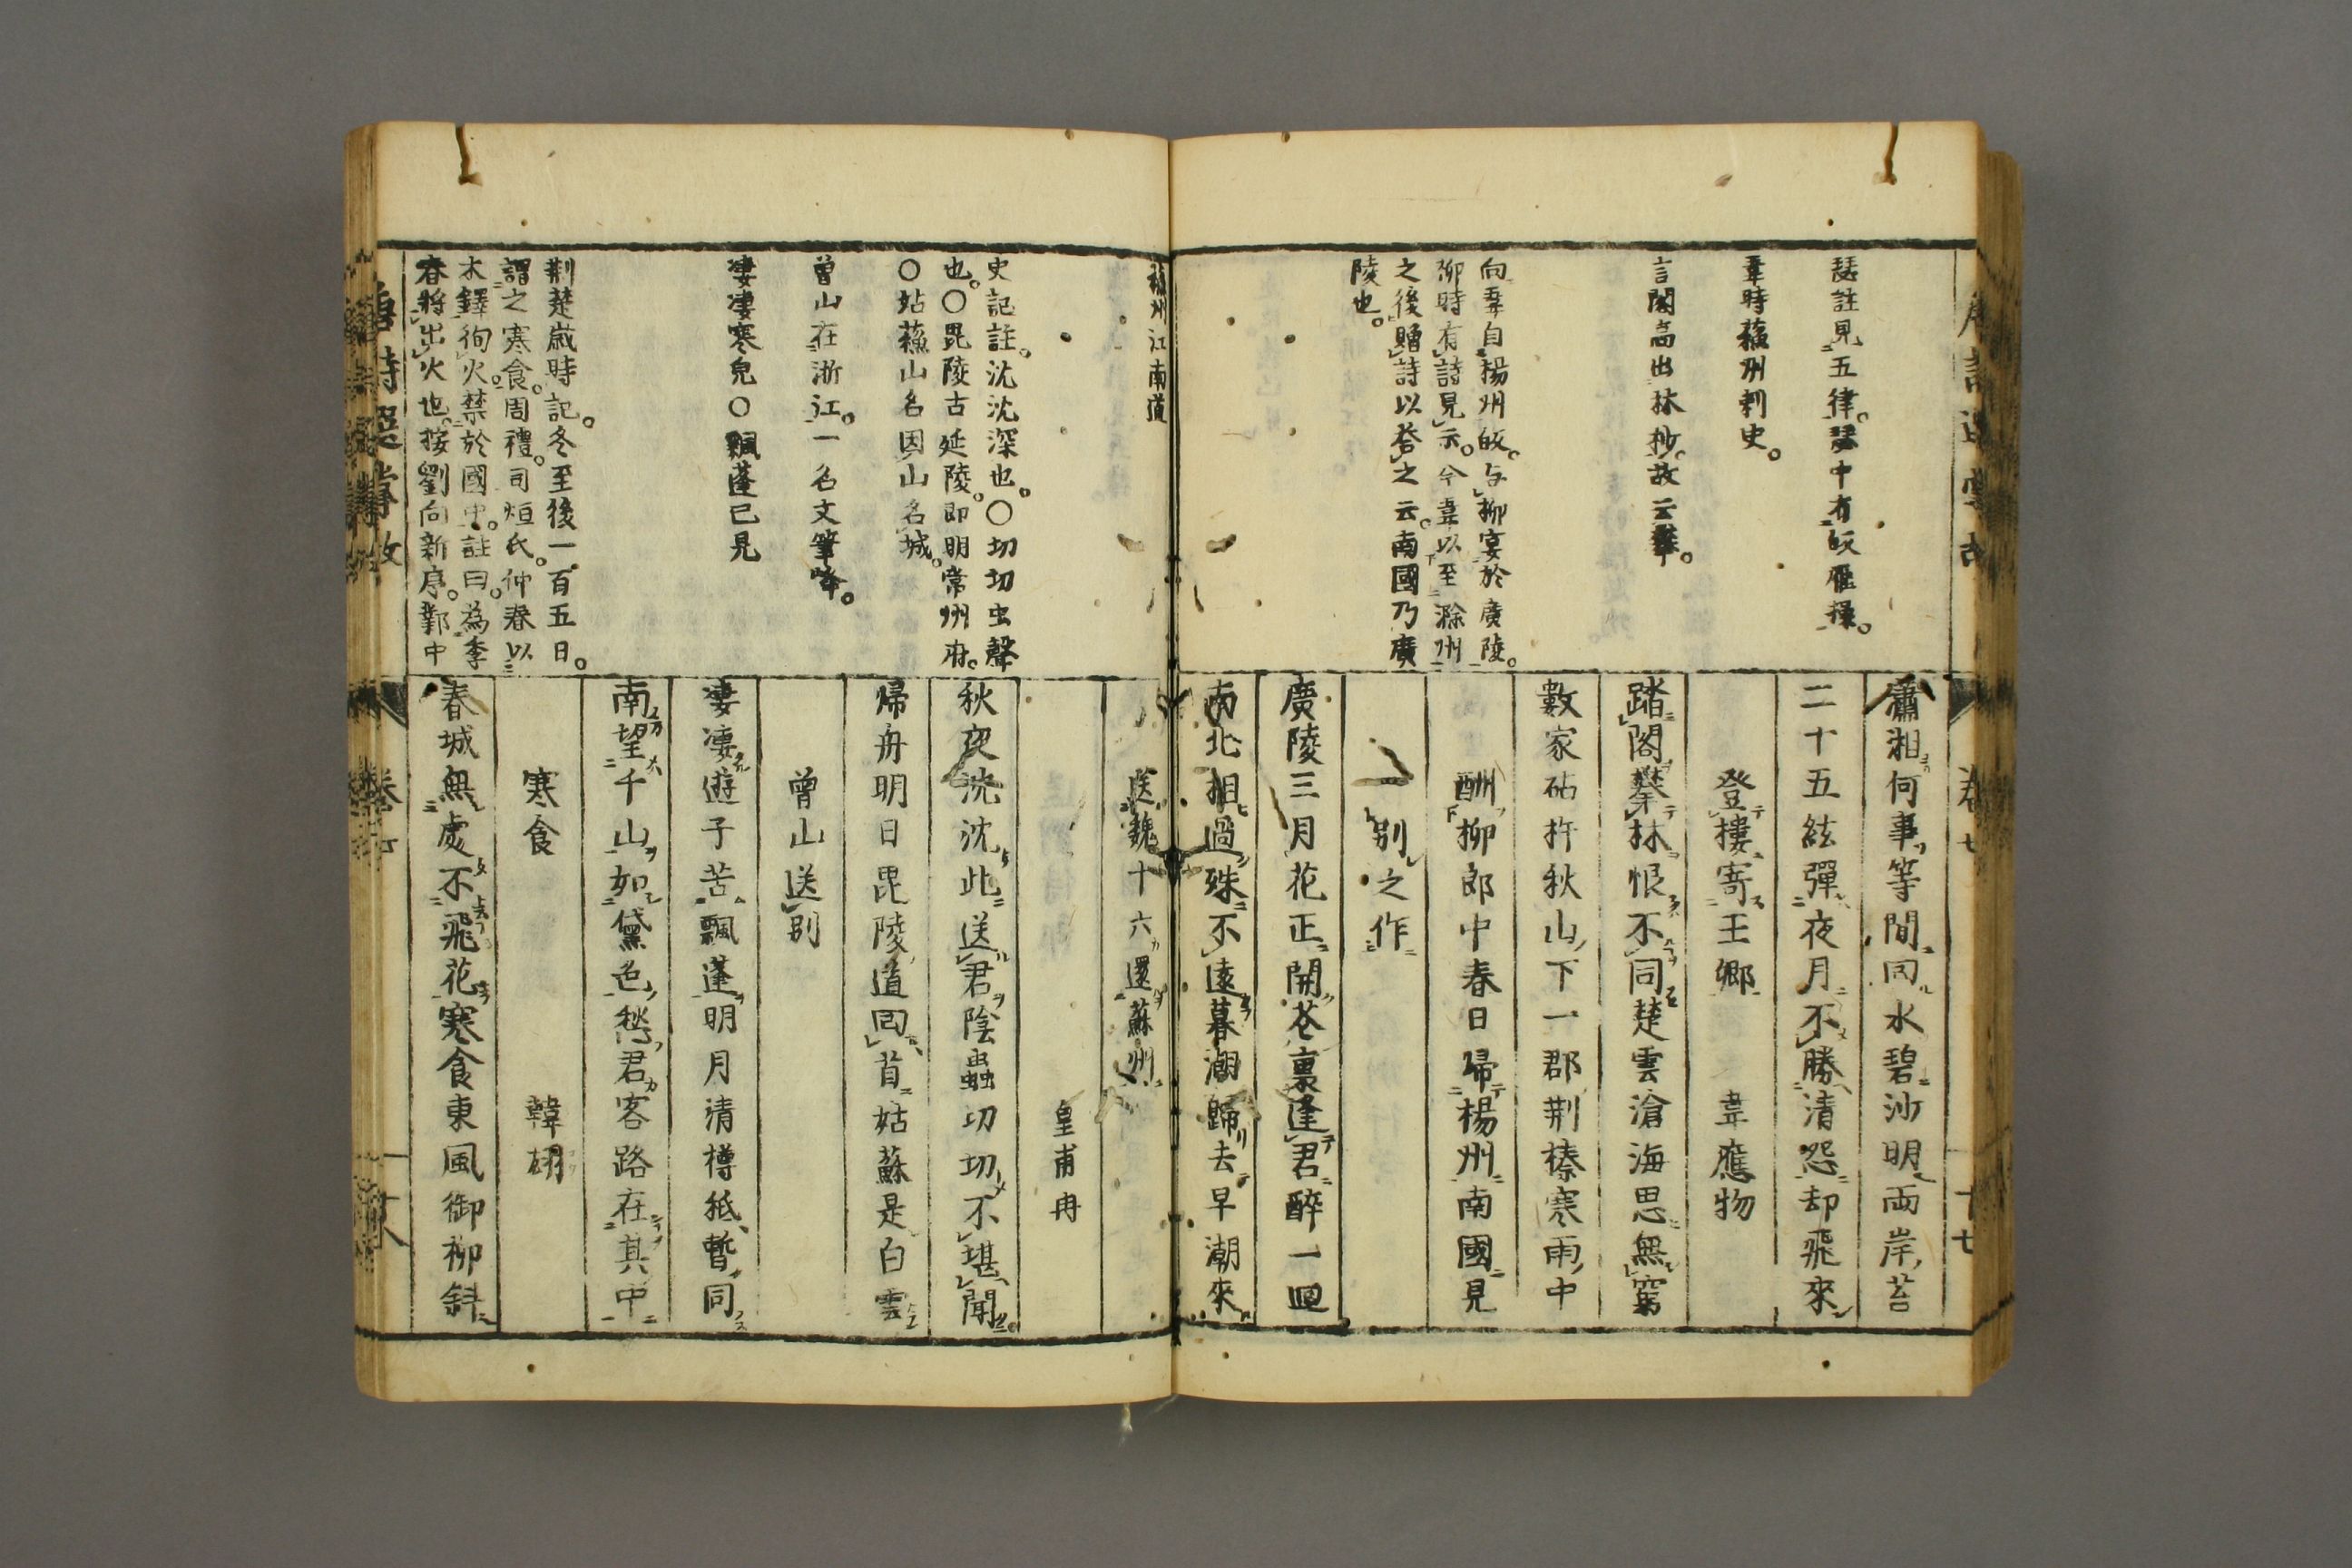 瑟註見五律。瑟中有皈雁操。
韋時蘓州刺史。
言閣高出林抄。故云攀。
向韋自揚州皈。与柳宴於廣陵。
柳時有詩見示。今韋以至滁州
之後贈詩以荅之云。南國乃廣
陵也。
瀟湘何事等閒回水碧沙明両岸苔
二十五絃彈夜月不勝清怨却飛來
登樓寄王郷 韋應物
踏閣攀林恨不同楚雲滄海思無窮
數家砧杵秋山下一郡荆榛寒雨中
酬柳郎中春日歸楊州南國見
別之作
廣陵三月花正開花裏逢君醉一迴
南北相過殊不遠暮潮歸去早潮來
卷七
十七
蘓州江南道
史記註。沈沈深也。○切切虫聲
也。○毘陵古延陵。即明常州府。
○姑蘓山名因山名城。
曾山在浙江。一名文筆峰。
凄凄寒皃○飄蓬已見
荆楚歳時記。冬至後一百五日。
謂之寒食。周禮。司烜氏。仲春以
木鐸徇火。禁於國中。註曰。為季
春將出火也。按劉向新序。鄴中
送魏十六還蘇州
皇甫冉
秋夜沈沈此送君陰蟲切切不堪聞
帰舟明日毘陵道回首姑蘇是白雲
曾山送別
凄凄遊子苦飄蓬明月清樽秪暫同
南望千山如黛色愁君客路在其中
寒食 韓翃
春城無處不飛花寒食東風御柳斜